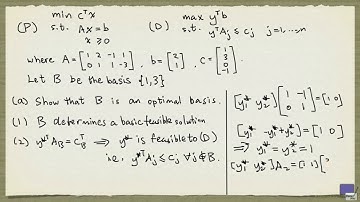 min cᵀx
(P) s.t. Ax = b
x ≥ 0
max yᵀb
(D) s.t. yᵀAj ≤ cj j=1,...,n
where A = [1 2 -1 1; 0 1 1 -3], b = [2; 1], c = [1; 3; 0; -1]
Let B be the basis {1,3}
(a) Show that B is an optimal basis.
(1) B determines a basic feasible solution
(2) y*ᵀA_B = c_Bᵀ ⇒ y* is feasible to (D)
i.e., y*ᵀAj ≤ cj ∀j∉B.
[y₁* y₂*] [1 -1; 0 1] = [1 0]
[y₁* -y₁*+y₂*] = [1 0]
⇒ y₁* = y₂* = 1
[y₁* y₂*] A₂ = [1 1] [